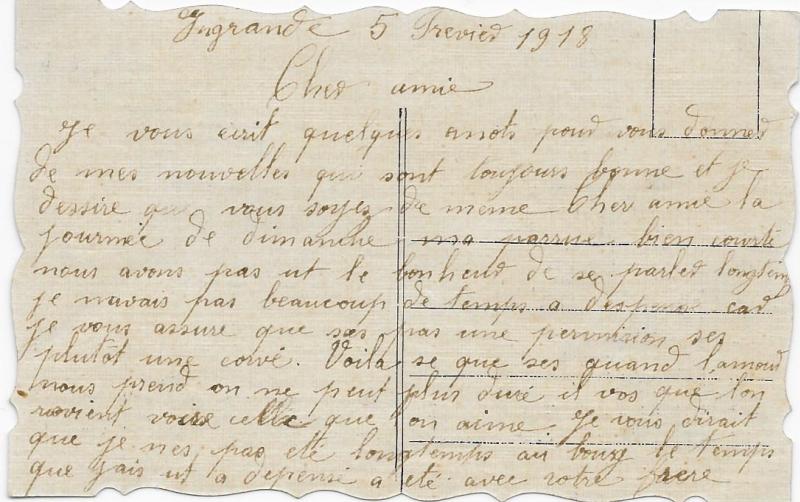 Ingrande 5 Frevier 1918
Cher amie
Je vous ecrit quelques mots pour vous donner
de mes nouvelles qui sont toujours bonne et je
dessire que vous soyez de meme Cher amie la
journée de dimanche ma parrue bien courte
nous avons pas ut le bonheur de se parler longtemp
je navais pas beaucoup de temps a depense car
je vous assure que ses pas une permision ses
plutôt une corvé. Voila se que ses quand l'amour
nous prend on ne peut plus duré il vos que lon
revient voire celle que lon aime Je vous dirait
que je nes pas eté longtemps au bourg le temps
que jais ut a depensé a eté avec votre frere